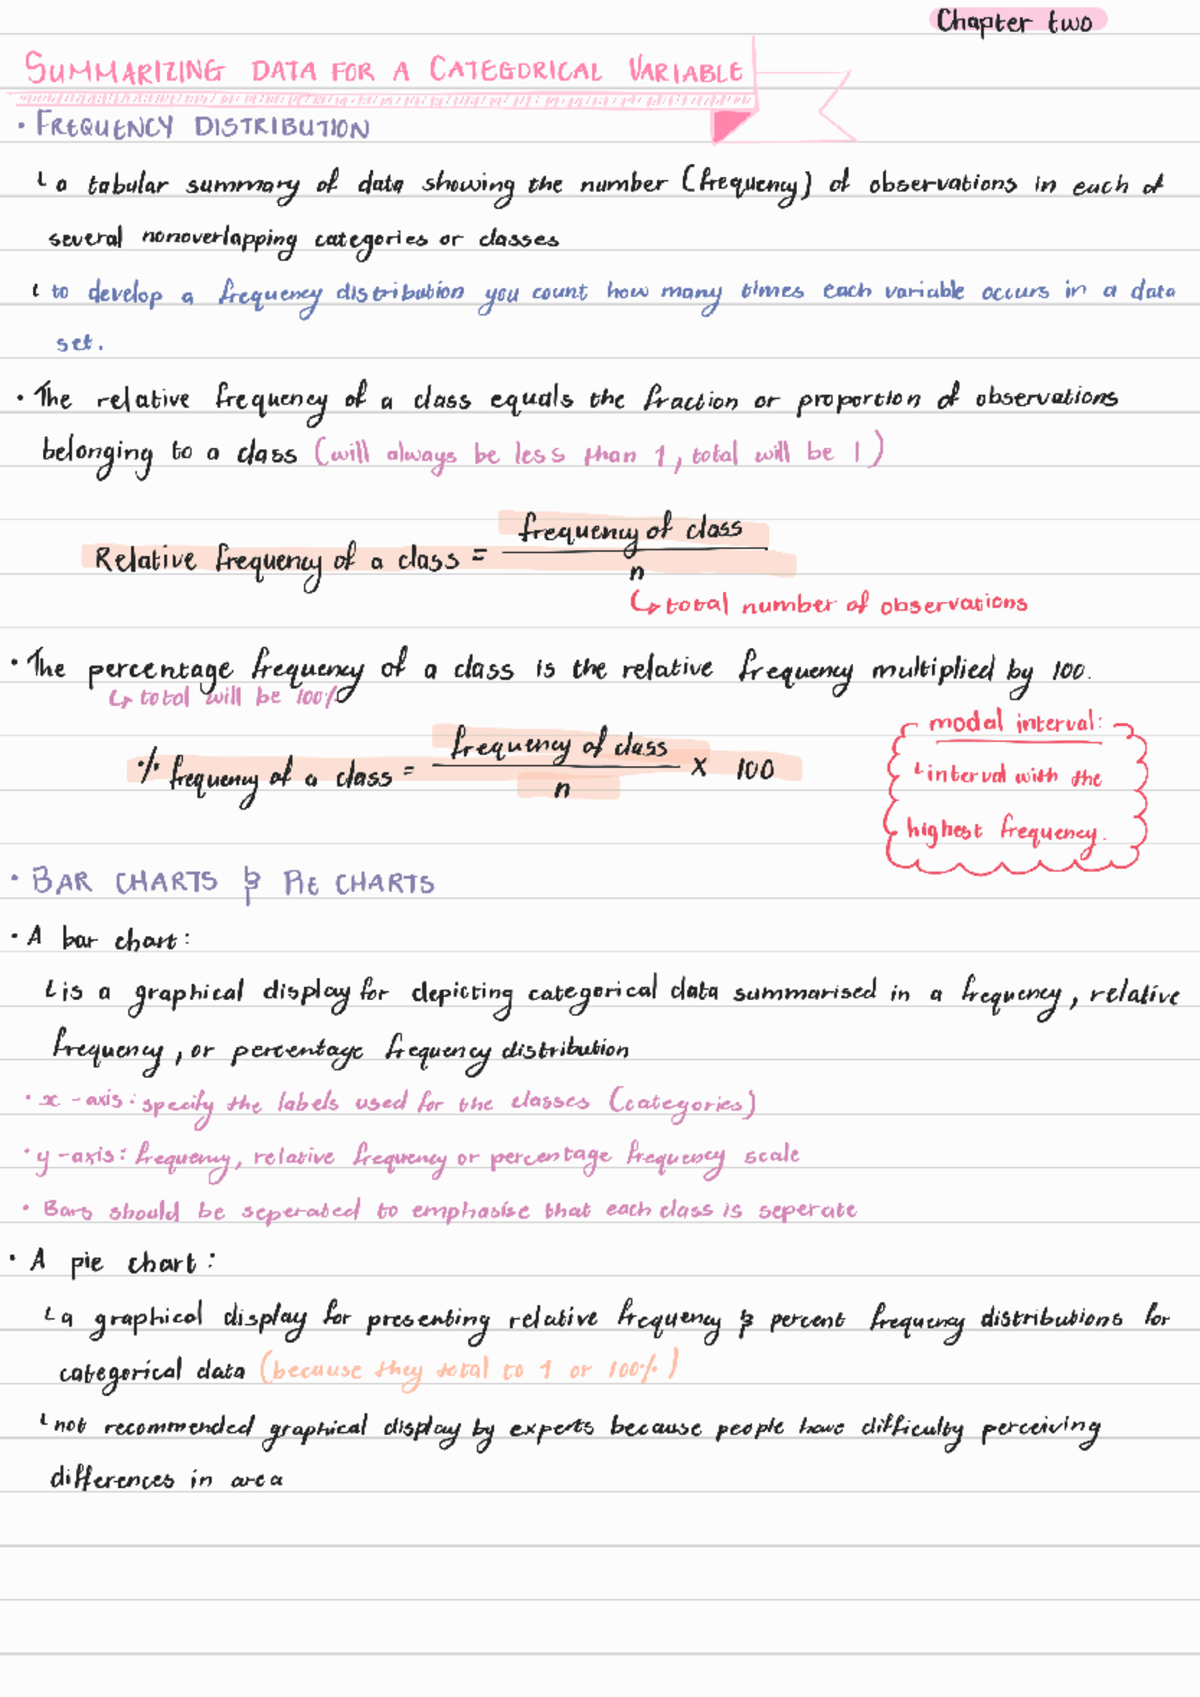 Chapter two
SUMMARIZING DATA FOR A CATEGORICAL VARIABLE
• FREQUENCY DISTRIBUTION
a tabular summary of data showing the number (frequency) of observations in each of
several nonoverlapping categories or classes
to develop a frequency distribution you count how many times each variable occurs in a data
set.
• The relative frequency of a class equals the fraction or proportion of observations
belonging to a class (will always be less than 1, total will be 1)
frequency of class
Relative frequency of a class =
n
↳ total number of observations
• The percentage frequency of a class is the relative frequency multiplied by 100.
↳ total will be 100%
modal interval:
frequency of class
% frequency of a class = × 100
n
interval with the
highest frequency.
• BAR CHARTS & PIE CHARTS
• A bar chart:
is a graphical display for depicting categorical data summarised in a frequency, relative
frequency, or percentage frequency distribution
• x-axis: specify the labels used for the classes (categories)
• y-axis: frequency, relative frequency or percentage frequency scale
• Bars should be seperated to emphasise that each class is seperate
• A pie chart:
a graphical display for presenting relative frequency & percent frequency distributions for
categorical data (because they total to 1 or 100%)
not recommended graphical display by experts because people have difficulty perceiving
differences in area